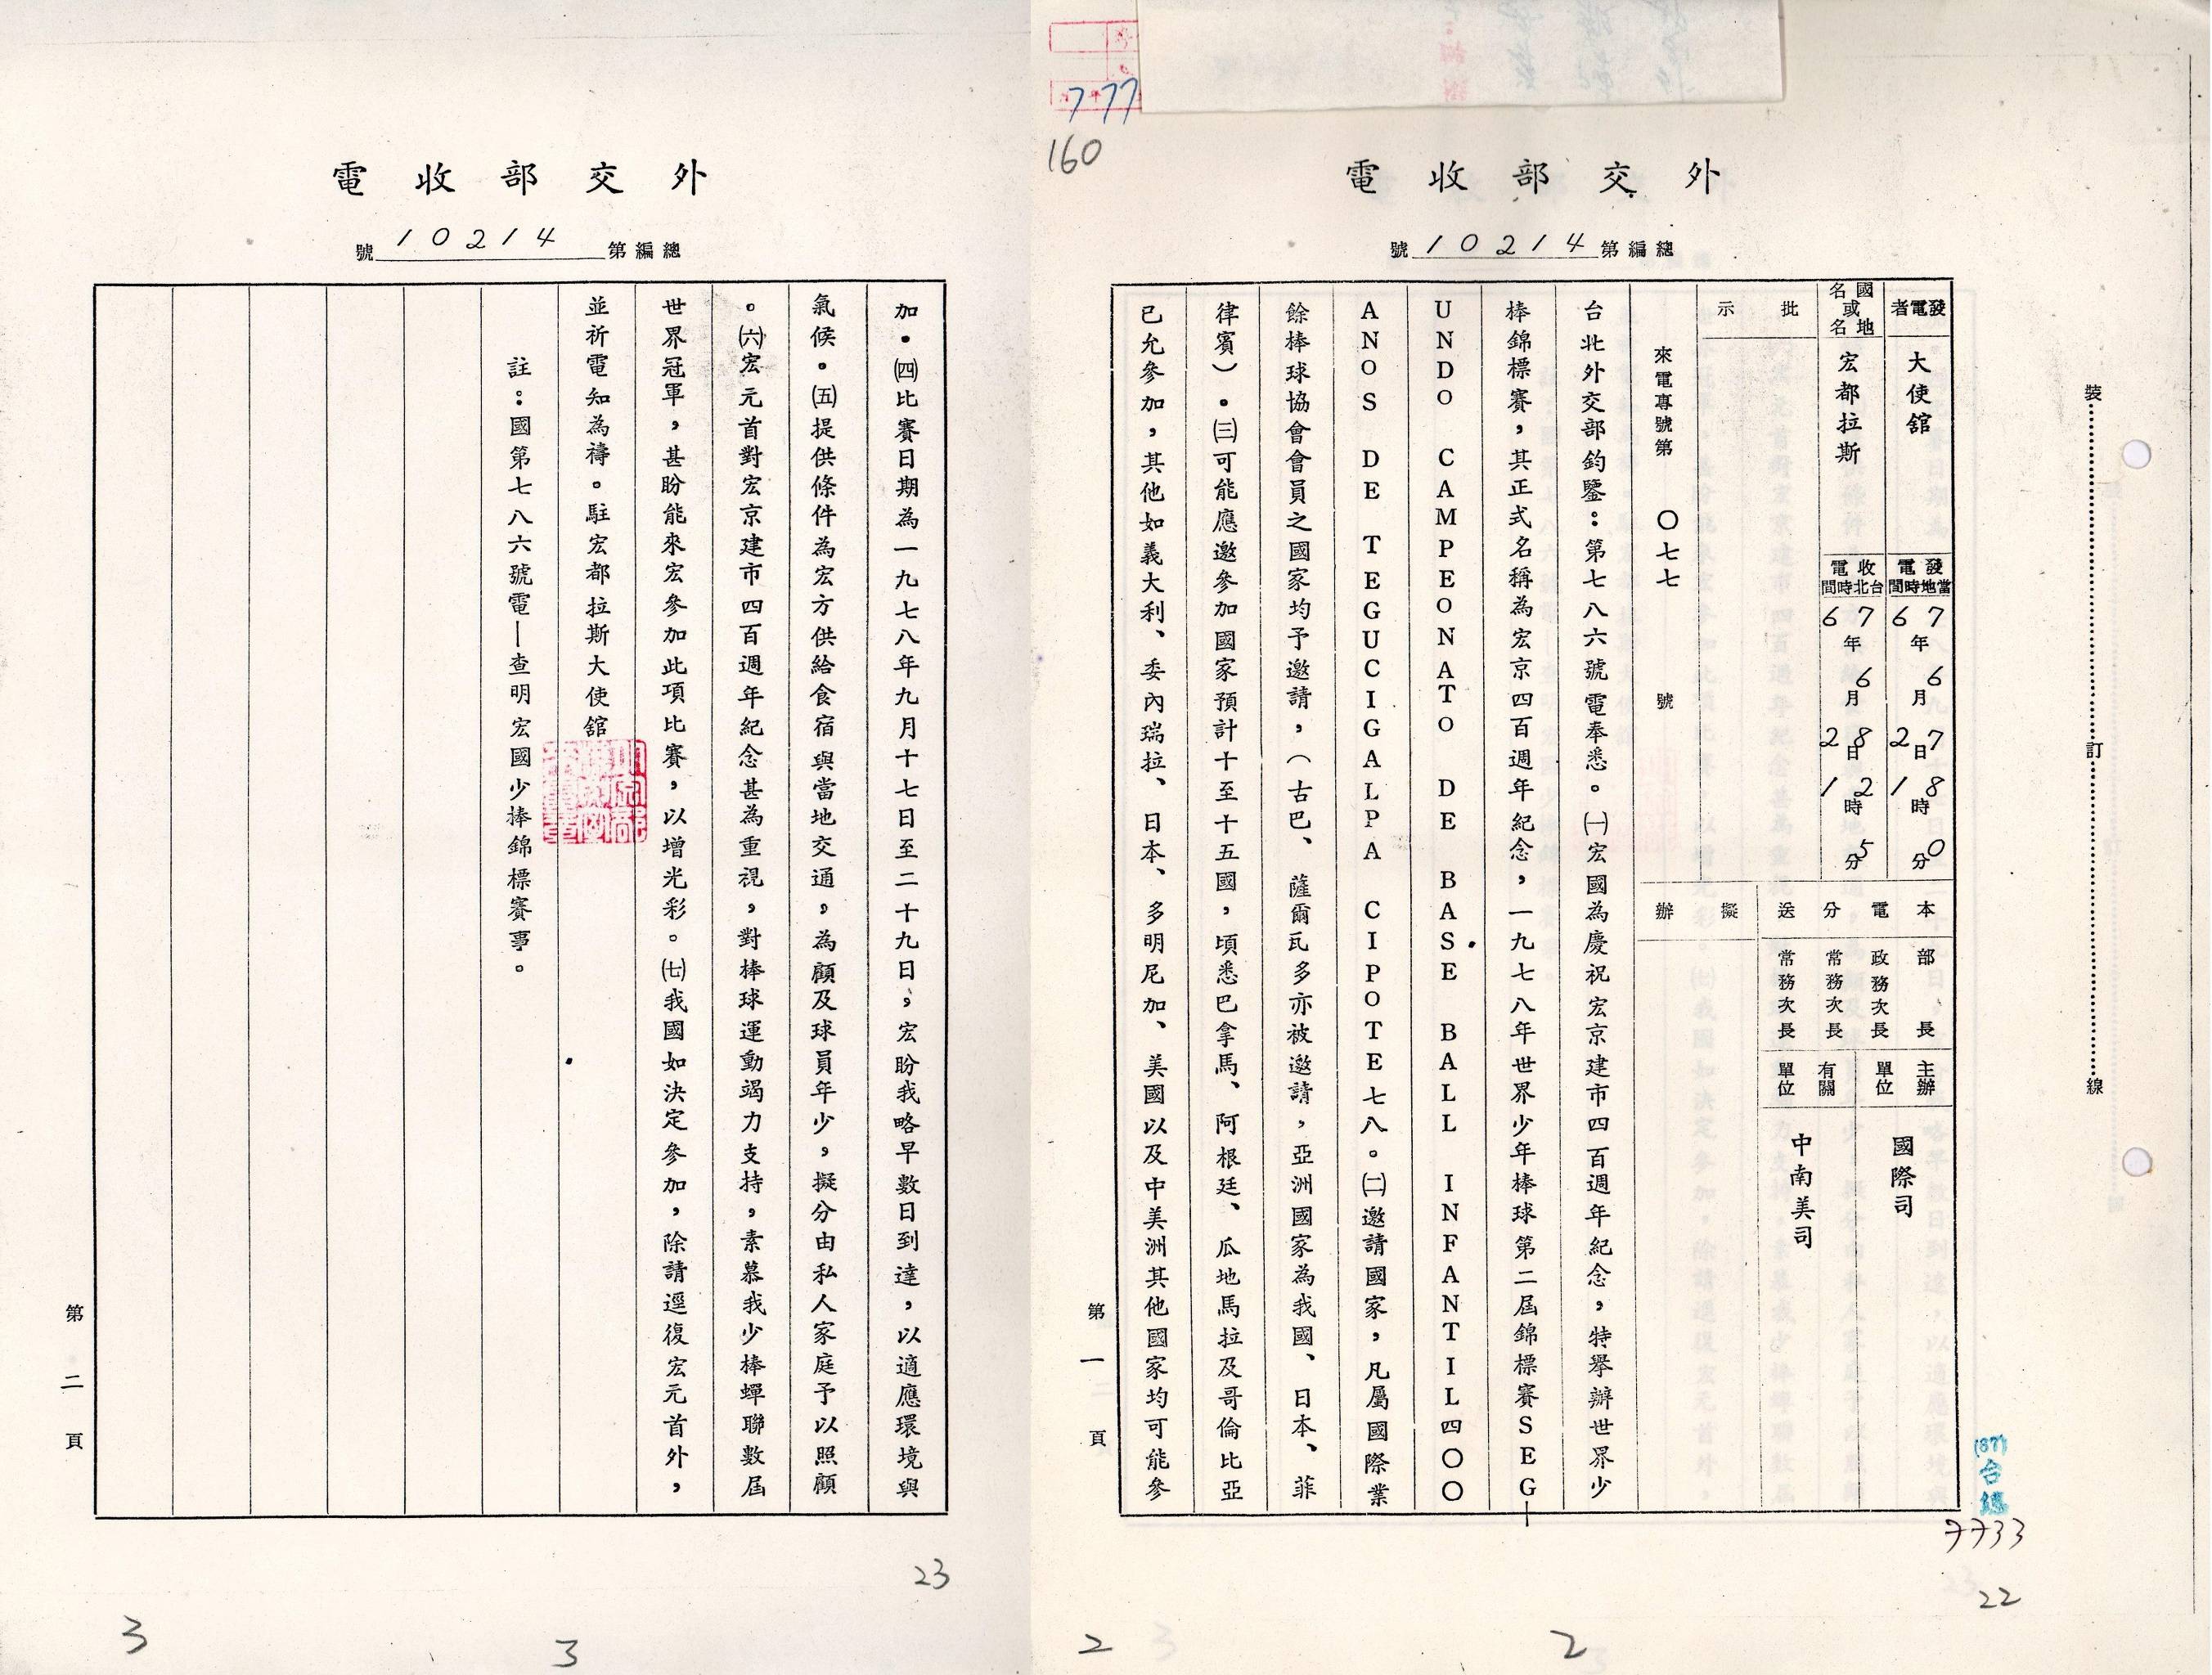 7777
160
外交部收電
總編第10214號
發電者
大使館
國名或地名
宏都拉斯
發電當地時間
67年6月27日18時0分
收電台北時間
67年6月28日12時5分
批示
來電專號第〇七七號
本電分送
部長
政務次長
常務次長
常務次長
主辦單位
國際司
有關單位
中南美司
擬辦
台北外交部鈞鑒：第七八六號電奉悉。㈠宏國為慶祝宏京建市四百週年紀念，特舉辦世界少
棒錦標賽，其正式名稱為宏京四百週年紀念，一九七八年世界少年棒球第二屆錦標賽SEG
UNDO CAMPEONATO DE BASE BALL INFANTIL四〇〇
ANOS DE TEGUCIGALPA CIPOTE七八。㈡邀請國家，凡屬國際業
餘棒球協會會員之國家均予邀請，（古巴、薩爾瓦多亦被邀請，亞洲國家為我國、日本、菲
律賓）。㈢可能應邀參加國家預計十至十五國，頃悉巴拿馬、阿根廷、瓜地馬拉及哥倫比亞
已允參加，其他如義大利、委內瑞拉、日本、多明尼加、美國以及中美洲其他國家均可能參
第一頁
裝訂線
(67)台總
7733
22
2
2
外交部收電
總編第10214號
加。㈣比賽日期為一九七八年九月十七日至二十九日，宏盼我略早數日到達，以適應環境與
氣候。㈤提供條件為宏方供給食宿與當地交通，為顧及球員年少，擬分由私人家庭予以照顧
。㈥宏元首對宏京建市四百週年紀念甚為重視，對棒球運動竭力支持，素慕我少棒蟬聯數屆
世界冠軍，甚盼能來宏參加此項比賽，以增光彩。㈦我國如決定參加，除請逕復宏元首外，
並祈電知為禱。駐宏都拉斯大使館
註：國第七八六號電—查明宏國少棒錦標賽事。
第二頁
23
3
3